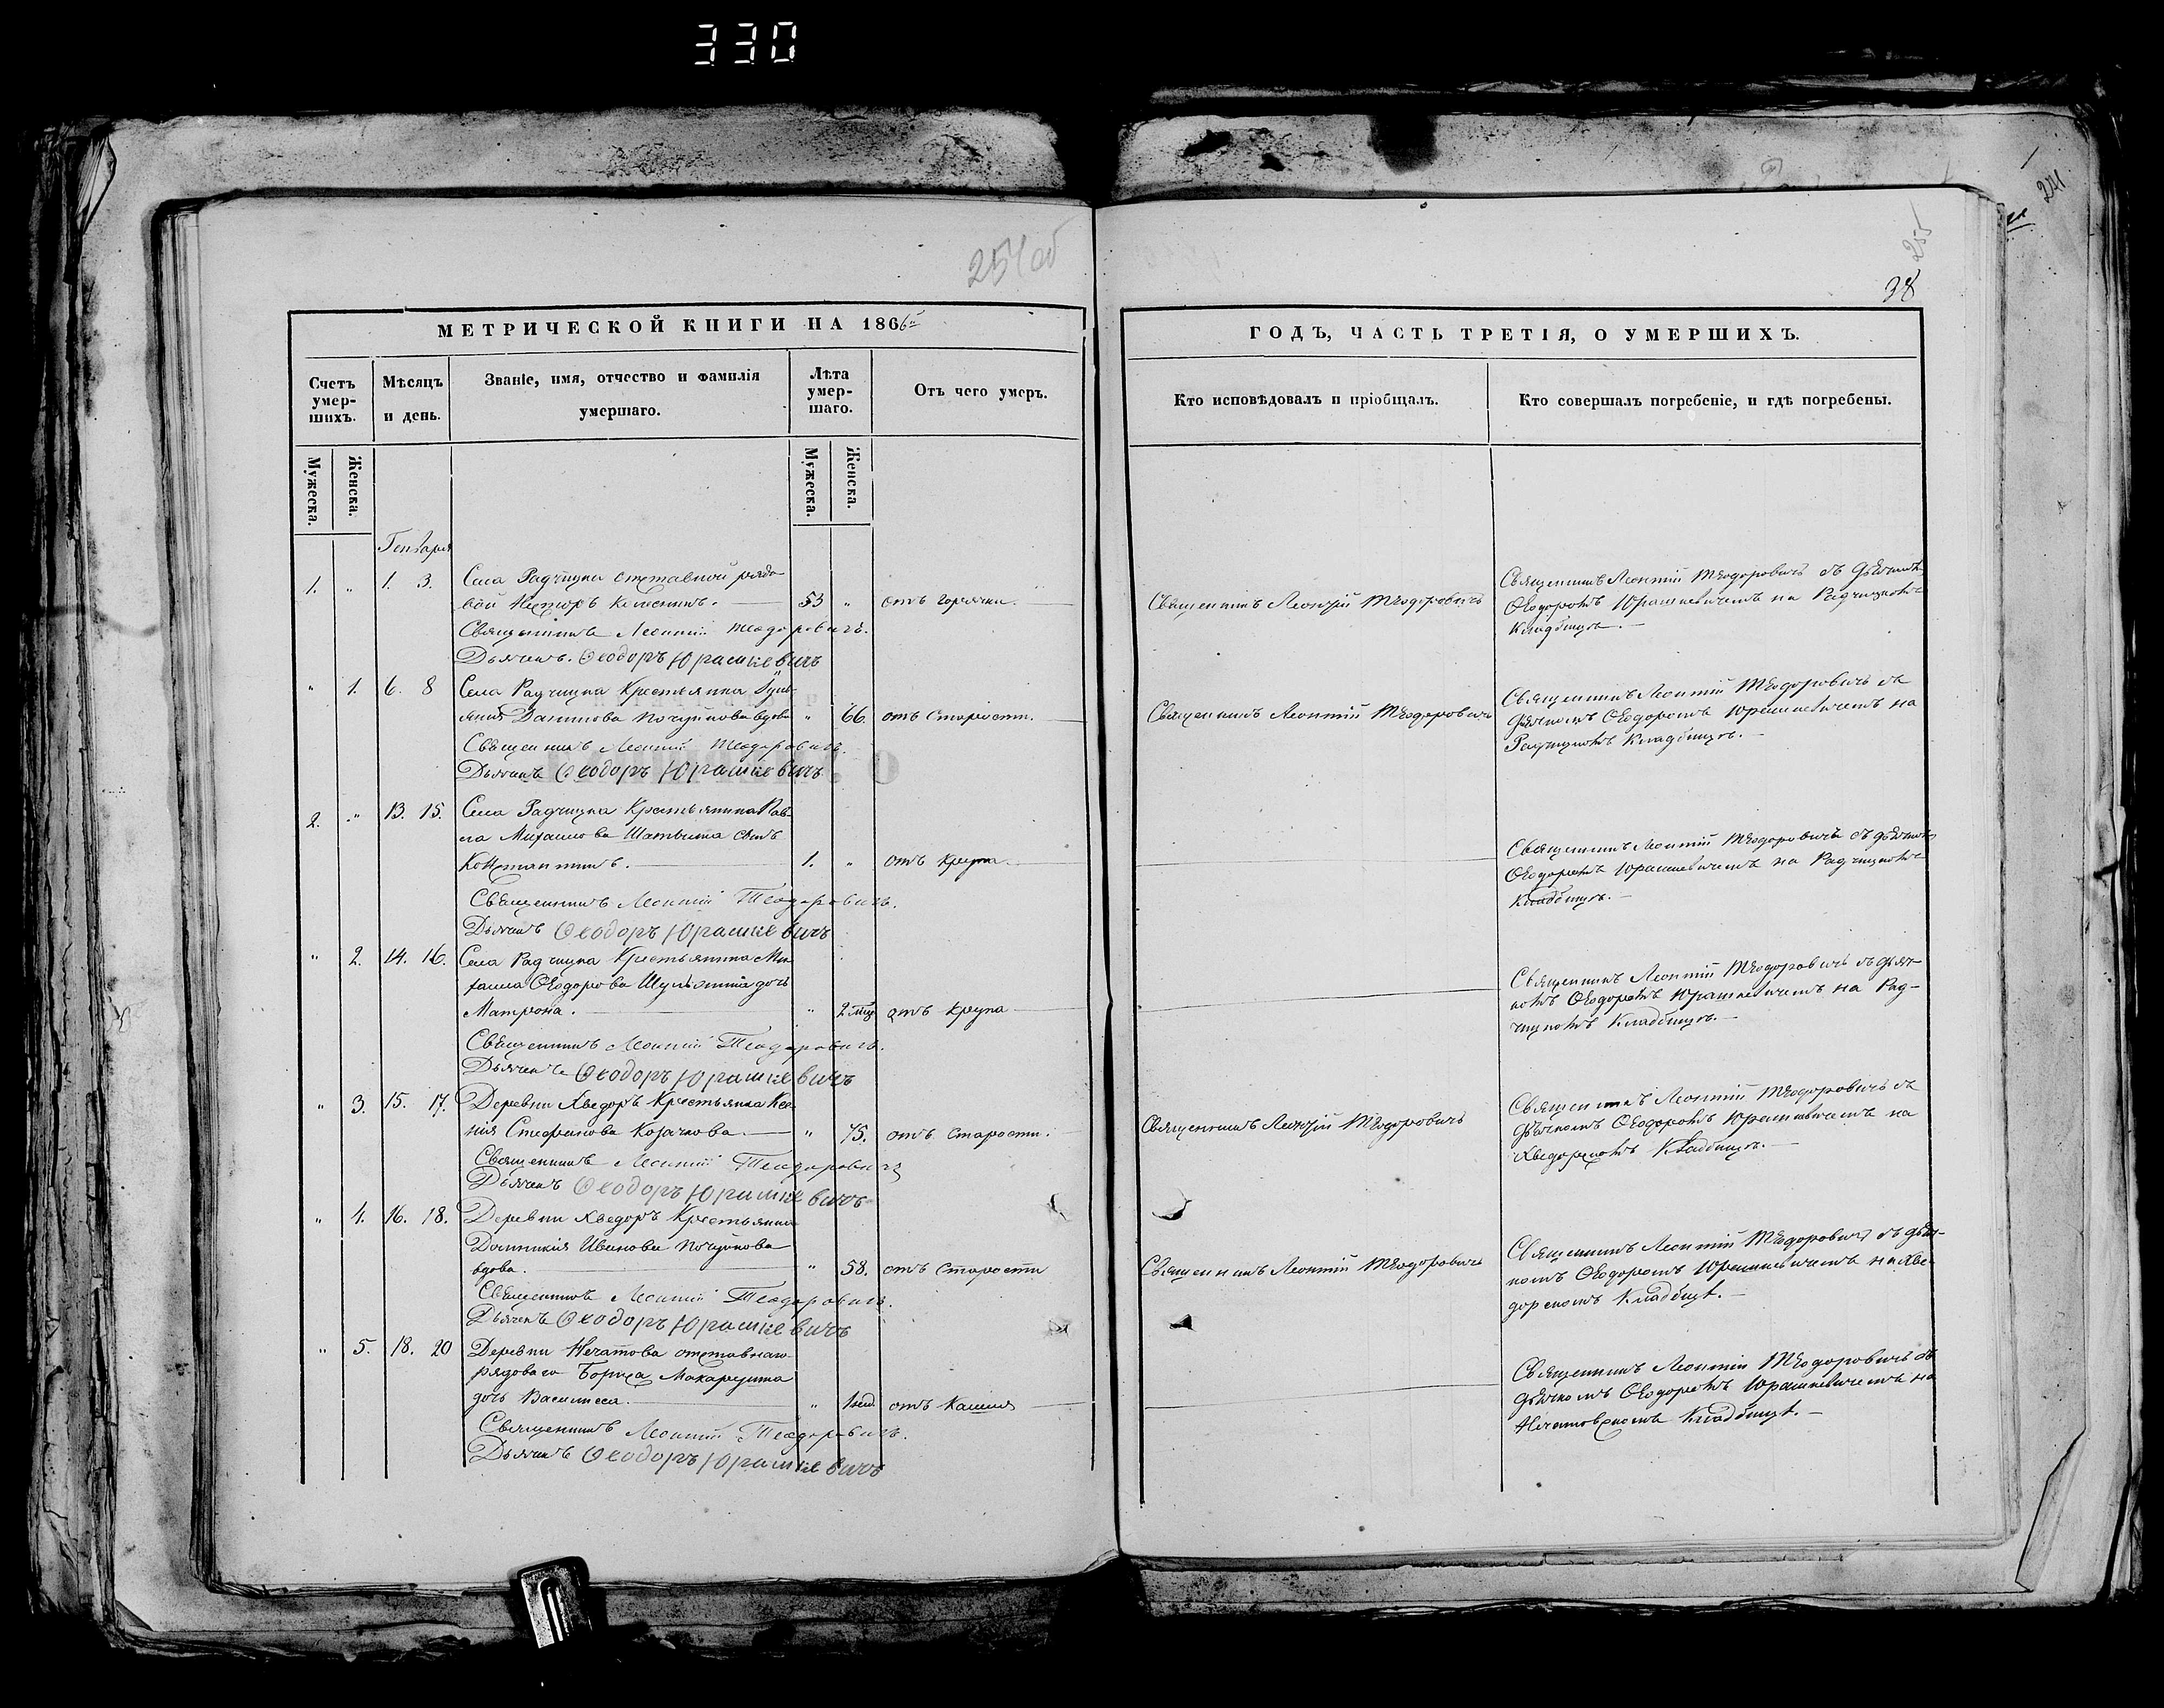 330
254об
255
241
38
МЕТРИЧЕСКОЙ КНИГИ НА 1866й
ГОДЪ, ЧАСТЬ ТРЕТІЯ, О УМЕРШИХЪ.
Счетъ умершихъ.
Мѣсяцъ и день.
Званіе, имя, отчество и фамилія умершаго.
Лѣта умершаго.
Отъ чего умеръ.
Кто исповѣдовалъ и пріобщалъ.
Кто совершалъ погребеніе, и гдѣ погребены.
Мужеска.
Женска.
Мужеска.
Женска.
Генваря
1. " 1. 3. Села Радчицка отставной рядо-
вой Несторъ 53 " отъ горячки.
Священникъ Леонтій Теодоровичъ.
Дьячекъ Ѳеодоръ Юрашкевичъ
Священникъ Леонтій Теодоровичъ
Священникъ Леонтій Теодоровичъ съ дьячкомъ
Ѳеодоромъ Юрашкевичемъ на Радчицкомъ
Кладбищѣ.
" 1. 6. 8 Села Радчицка Крестьянка
Данилова вдова " 66. отъ старости.
Священникъ Леонтій Теодоровичъ.
Дьячекъ Ѳеодоръ Юрашкевичъ
Священникъ Леонтій Теодоровичъ
Священникъ Леонтій Теодоровичъ съ
дьячкомъ Ѳеодоромъ Юрашкевичемъ на
Радчицкомъ Кладбищѣ.
2. " 13. 15. Села Радчицка Крестьянина Пав-
ла Михайлова сынъ
Константинъ. 1. " отъ крупа
Священникъ Леонтій Теодоровичъ.
Дьячекъ Ѳеодоръ Юрашкевичъ
Священникъ Леонтій Теодоровичъ съ дьячкомъ
Ѳеодоромъ Юрашкевичемъ на Радчицкомъ
Кладбищѣ.
" 2. 14. 16. Села Радчицка Крестьянина Ми-
хаила Ѳеодорова дочь
Матрона. " 2 мѣс. отъ крупа
Священникъ Леонтій Теодоровичъ.
Дьячекъ Ѳеодоръ Юрашкевичъ
Священникъ Леонтій Теодоровичъ съ дьяч-
комъ Ѳеодоромъ Юрашкевичемъ на Рад-
чицкомъ Кладбищѣ.
" 3. 15. 17. Деревни Хведоръ Крестьянка Ксе-
нія Стефанова Козачкова " 75. отъ старости.
Священникъ Леонтій Теодоровичъ
Дьячекъ Ѳеодоръ Юрашкевичъ
Священникъ Леонтій Теодоровичъ
Священникъ Леонтій Теодоровичъ съ
дьячкомъ Ѳеодоромъ Юрашкевичемъ на
Хведорскомъ Кладбищѣ.
" 4. 16. 18. Деревни Хведоръ Крестьянка
Домникія Иванова
вдова. " 58. отъ старости
Священникъ Леонтій Теодоровичъ.
Дьячекъ Ѳеодоръ Юрашкевичъ
Священникъ Леонтій Теодоровичъ
Священникъ Леонтій Теодоровичъ съ дьяч-
комъ Ѳеодоромъ Юрашкевичемъ на Хве-
дорскомъ Кладбищѣ.
" 5. 18. 20 Деревни Нечатова отставнаго
рядоваго Бориса
дочь Василисса. " 1 нед. отъ кашля
Священникъ Леонтій Теодоровичъ.
Дьячекъ Ѳеодоръ Юрашкевичъ
Священникъ Леонтій Теодоровичъ съ
дьячкомъ Ѳеодоромъ Юрашкевичемъ на
Нечатовскомъ Кладбищѣ.